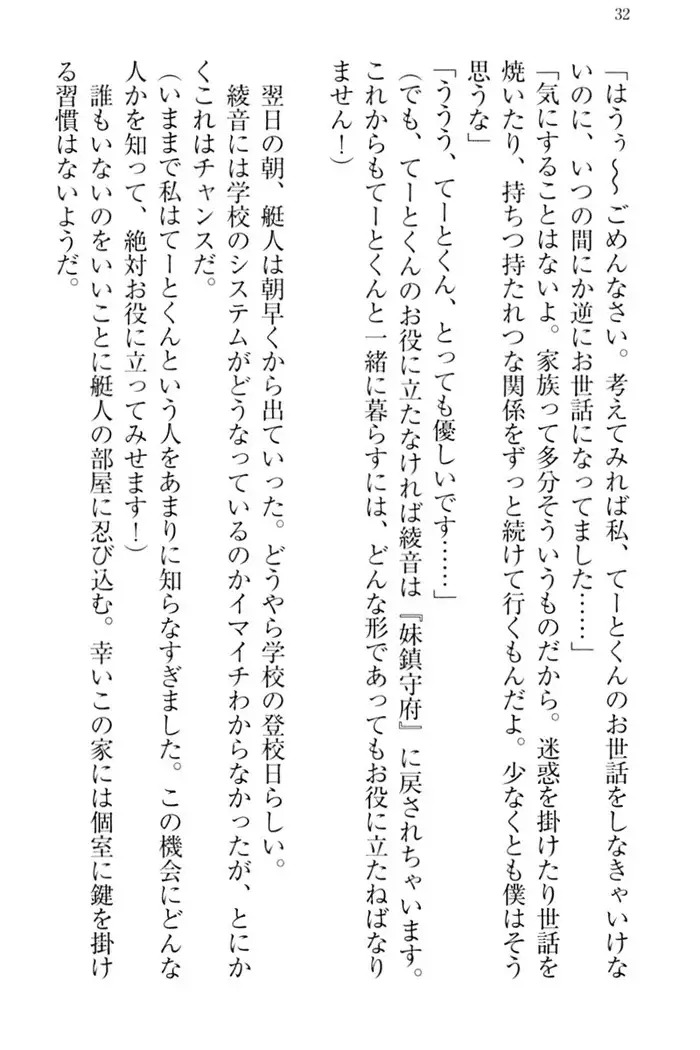 32
「はうぅ～ ごめんなさい。考えてみれば私、てーとくんのお世話をしなきゃいけな
いのに、いつの間にか逆にお世話になってました……」
「気にすることはないよ。家族って多分そういうものだから。迷惑を掛けたり世話を
焼いたり、持ちつ持たれつな関係をずっと続けて行くもんだよ。少なくとも僕はそう
思うな」
「ううう、てーとくん、とっても優しいです……」
(でも、てーとくんのお役に立たなければ綾音は『妹鎮守府』に戻されちゃいます。
これからもてーとくんと一緒に暮らすには、どんな形であってもお役に立たねばなり
ません！)
翌日の朝、艇人は朝早くから出ていった。どうやら学校の登校日らしい。
綾音には学校のシステムがどうなっているのかイマイチわからなかったが、とにか
くこれはチャンスだ。
(いままで私はてーとくんという人をあまりに知らなすぎました。この機会にどんな
人かを知って、絶対お役に立ってみせます！)
誰もいないのをいいことに艇人の部屋に忍び込む。幸いこの家には個室に鍵を掛け
る習慣はないようだ。